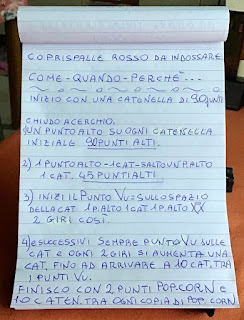 COPRISPALLE ROSSO DA INDOSSARE
COME-QUANDO-PERCHÉ...
INIZIO CON UNA CATENELLA DI 90 PUNTI
CHIUDO A CERCHIO.
1) UN PUNTO ALTO SU OGNI CATENELLA
INIZIALE 90 PUNTI ALTI.
2) 1 PUNTO ALTO-1 CAT-SALTO UN P.ALTO
1 CAT. 45 PUNTI ALTI
3) INIZI IL PUNTO VU= SULLO SPAZIO
DELLA CAT 1P.ALTO 1 CAT 1P.ALTO XX
2 GIRI COSÌ.
4) E SUCCESSIVI SEMPRE PUNTO VU SULLE
CAT E OGNI 2 GIRI SI AUMENTA UNA
CAT, FINO AD ARRIVARE A 10 CAT, TRA
I PUNTI VU.
FINISCO CON 2 PUNTI POP.CORN E
10 CATEN. TRA OGNI COPIA DI POP. CORN